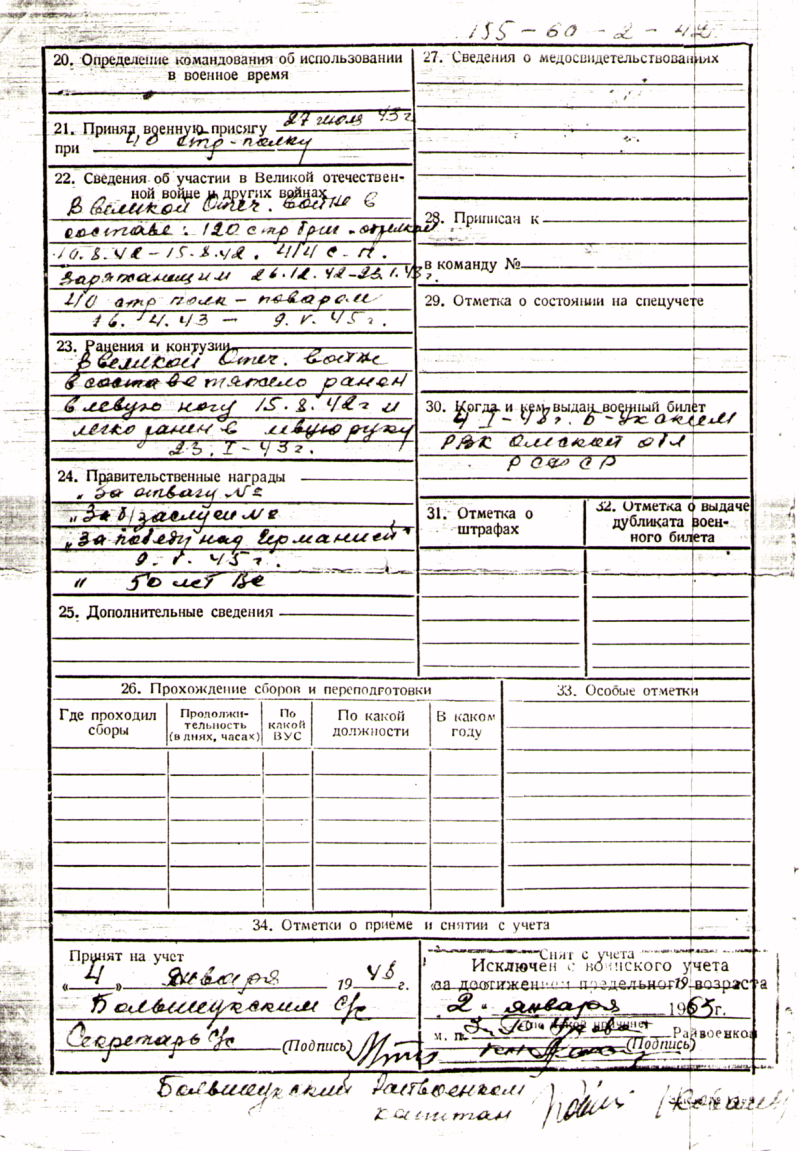 155-60-2-42
20. Определение командования об использовании
в военное время
21. Принял военную присягу 27 июля 43г
при 40 стр-полку
22. Сведения об участии в Великой отечествен-
ной войне и других войнах
В Великой Отеч. войне в
составе: 120 стр бриг.
10.8.42-15.8.42. 414 с.п.
Заряжающим 26.12.42-23.1.43г.
40 стр полк - поваром
16.4.43 - 9.V.45г.
23. Ранения и контузии
В Великой Отеч. войне
в составе тяжело ранен
в левую ногу 15.8.42г и
легко ранен в левую руку
23.I-43г.
24. Правительственные награды
„За отвагу №
„За б/заслуги №
„За победу над Германией"
9.V.45г.
„ 50 лет ВС
25. Дополнительные сведения
27. Сведения о медосвидетельствованиях
28. Приписан к
в команду №
29. Отметка о состоянии на спецучете
30. Когда и кем выдан военный билет
4 I-48г. Б-Укским
РВК Омской обл
РСФСР
31. Отметка о
штрафах
32. Отметка о выдаче
дубликата воен-
ного билета
26. Прохождение сборов и переподготовки
Где проходил
сборы
Продолжи-
тельность
(в днях, часах)
По
какой
ВУС
По какой
должности
В каком
году
33. Особые отметки
34. Отметки о приеме и снятии с учета
Принят на учет
«4» января 1948 г.
Большеукским с/с
Секретарь с/с
(Подпись)
Снят с учета
Исключен с воинского учета
за достижением предельного возраста
2. января 1965г.
м. п. Райвоенком
(Подпись)
Большеукский Райвоенком
капитан